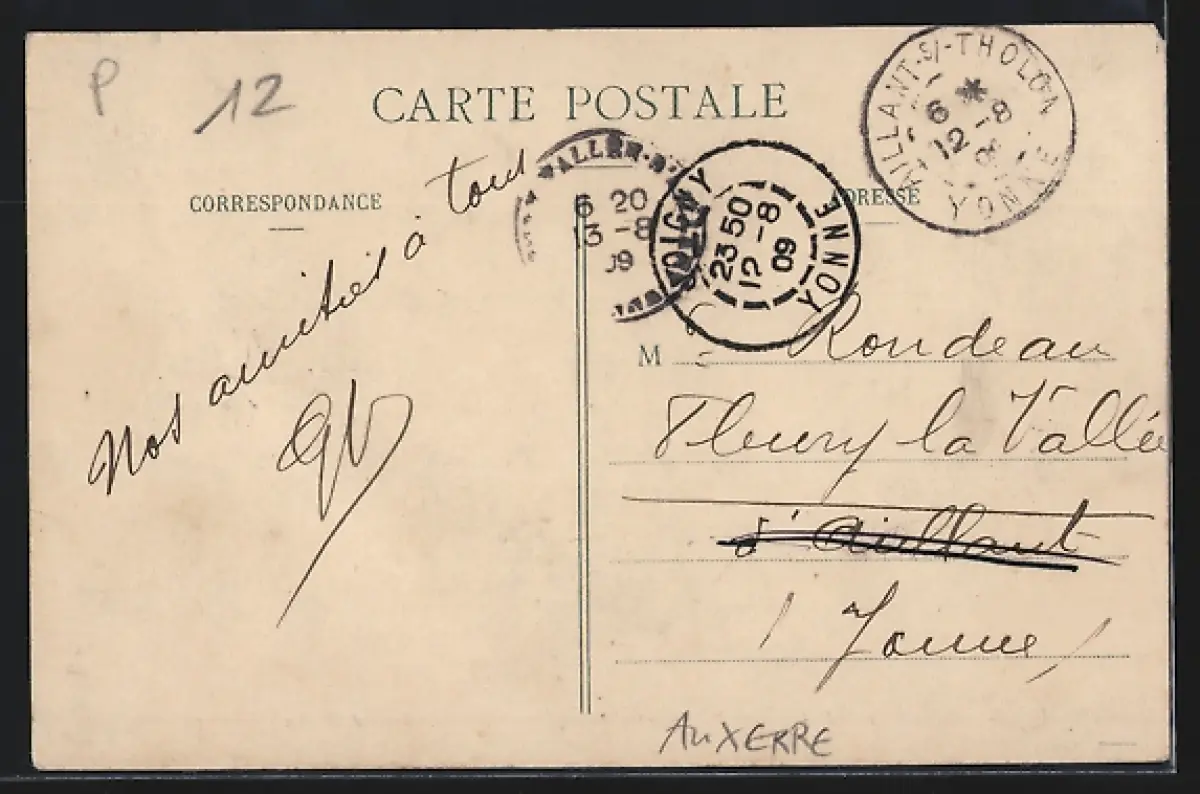 P
12
CARTE POSTALE
CORRESPONDANCE
ADRESSE
AILLANT-S/-THOLON
6 *
12 -8
YONNE
VALLÉE
6 20
13 -8
09
JOIGNY
23 50
12 -8
09
YONNE
Nos amitiés à tous
M Rondeau
Fleury la Vallée
d'Aillant
(Yonne)
AUXERRE